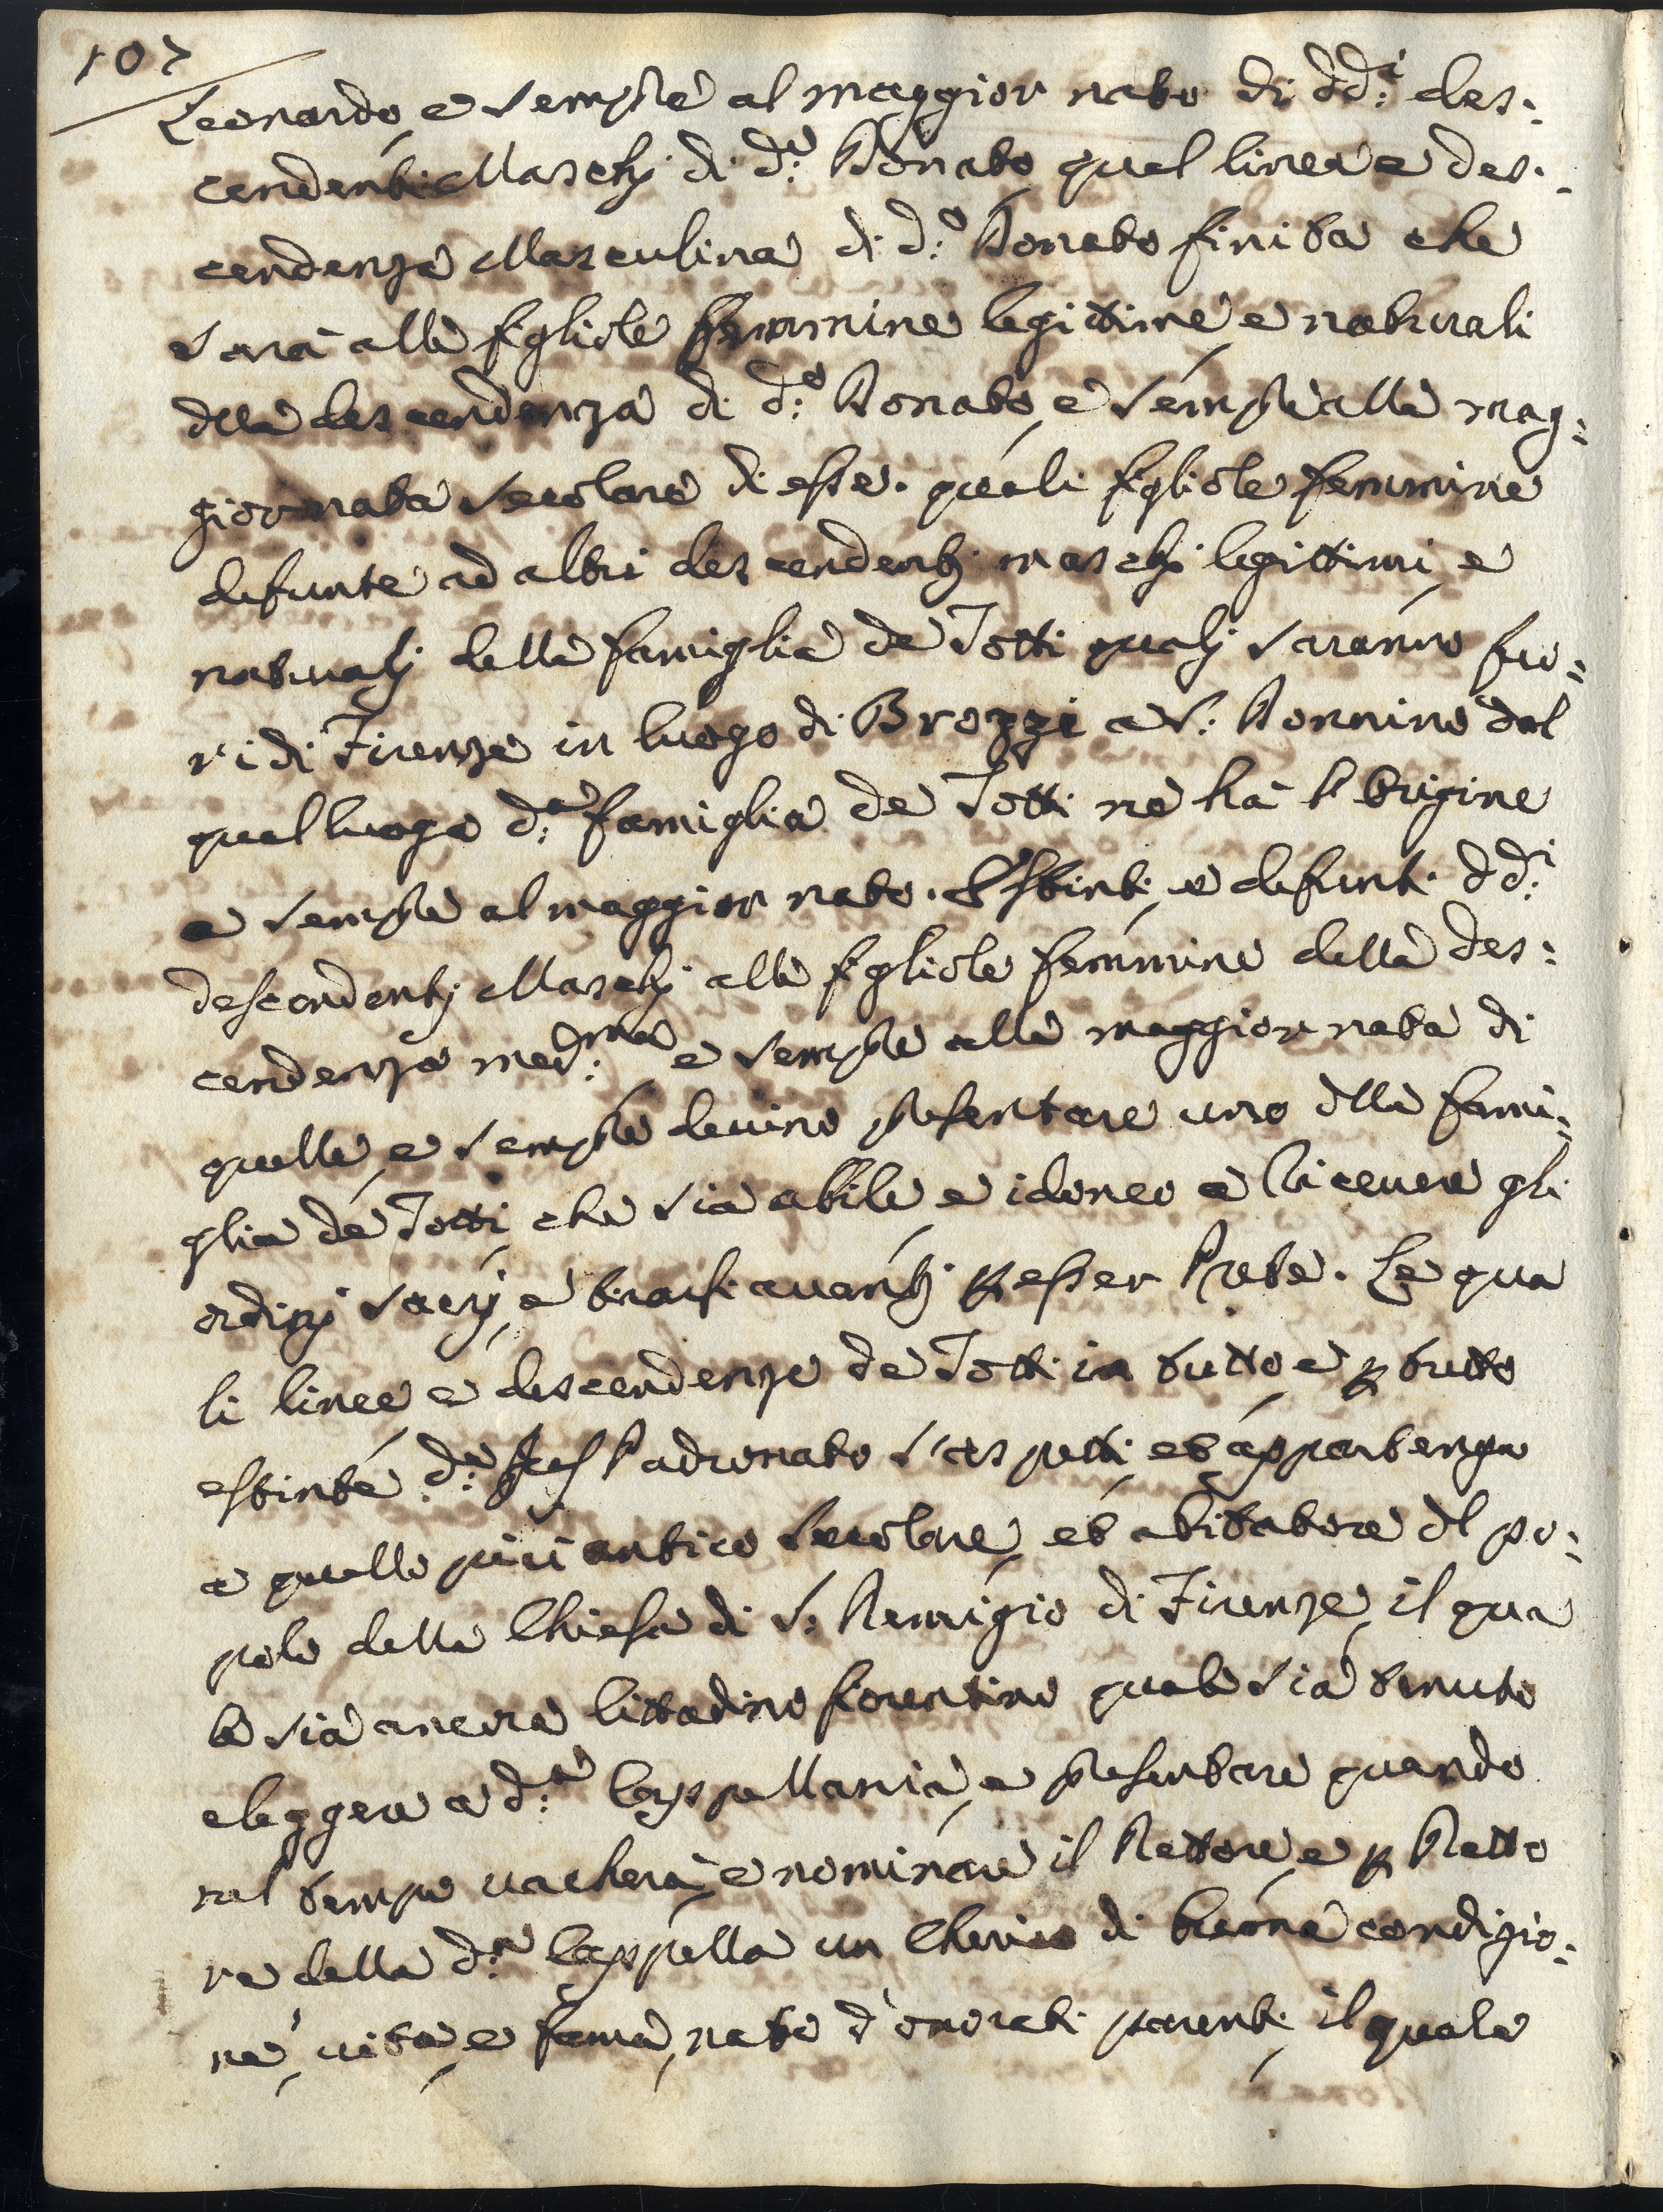 107
Leonardo, e sempre al maggior nato di dd:i des:
cendenti Maschj di d:o Donato, qual linea e des:
cendenza Masculina di d:o Donato finita che
sarà alle figliole femmine legittime e naturali
dlla descendenza di d:o Donato, e sempre alla mag:
giornata secolare di esse. quali figliole femmine
defunte ad altri descendentj maschj legittimi, e
naturalj della famiglia de Totti qualj saranno fuo:
ri di Firenze in luogo di Brozzi a S: Donnino dal
qual luogo d:a famiglia de Totti ne hà l'origine
e sempre al maggior nato. Estinti, e defunti dd:i
descendentj Maschj alle figliole femmine della des:
cendenza med:ma e sempre alla maggior nata di
quelle, e sempre devino presentare uno dlla fami:
glia de Totti, che sia abile e idoneo a ricevere gli
ordinj sacrj, e tirarsi avantj p esser Prete. Le qua
li linee e descendenze de Totti in tutto e p tutto
estinte, d:o Jus Padronato s'aspetti, et appartenga
a quello più antico secolare, et abitatore dl po:
polo della Chiesa di S: Remigio di Firenze, il qua
le sia ancora Cittadino fiorentino quale sia tenuto
eleggere a d:a Cappellania, e presentare quando
nel tempo vacherà, e nominare il Rettore, e p Retto
re della d:a Cappella un Cherico di buona condizio:
ne, vita, e fama, nato d'onorati parenti, il quale